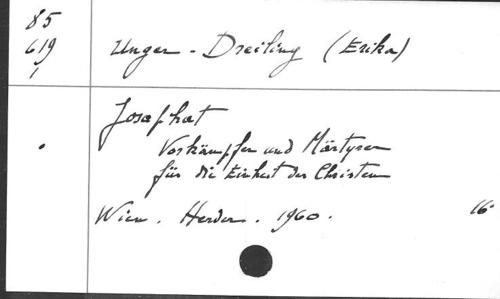 85
619
1
Unger - Dreiling (Erika)
Josaphat
Vorkämpfer und Märtyrer
für die Einheit der Christen
Wien. Herder. 1960.
16°